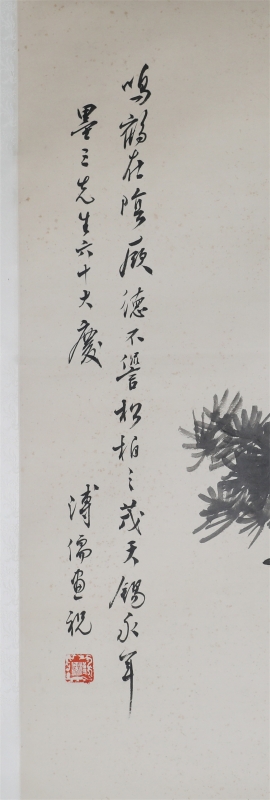 鳴鶴在陰厥德不讐松柏之茂天錫永年
墨三先生六十大慶
溥儒画祝